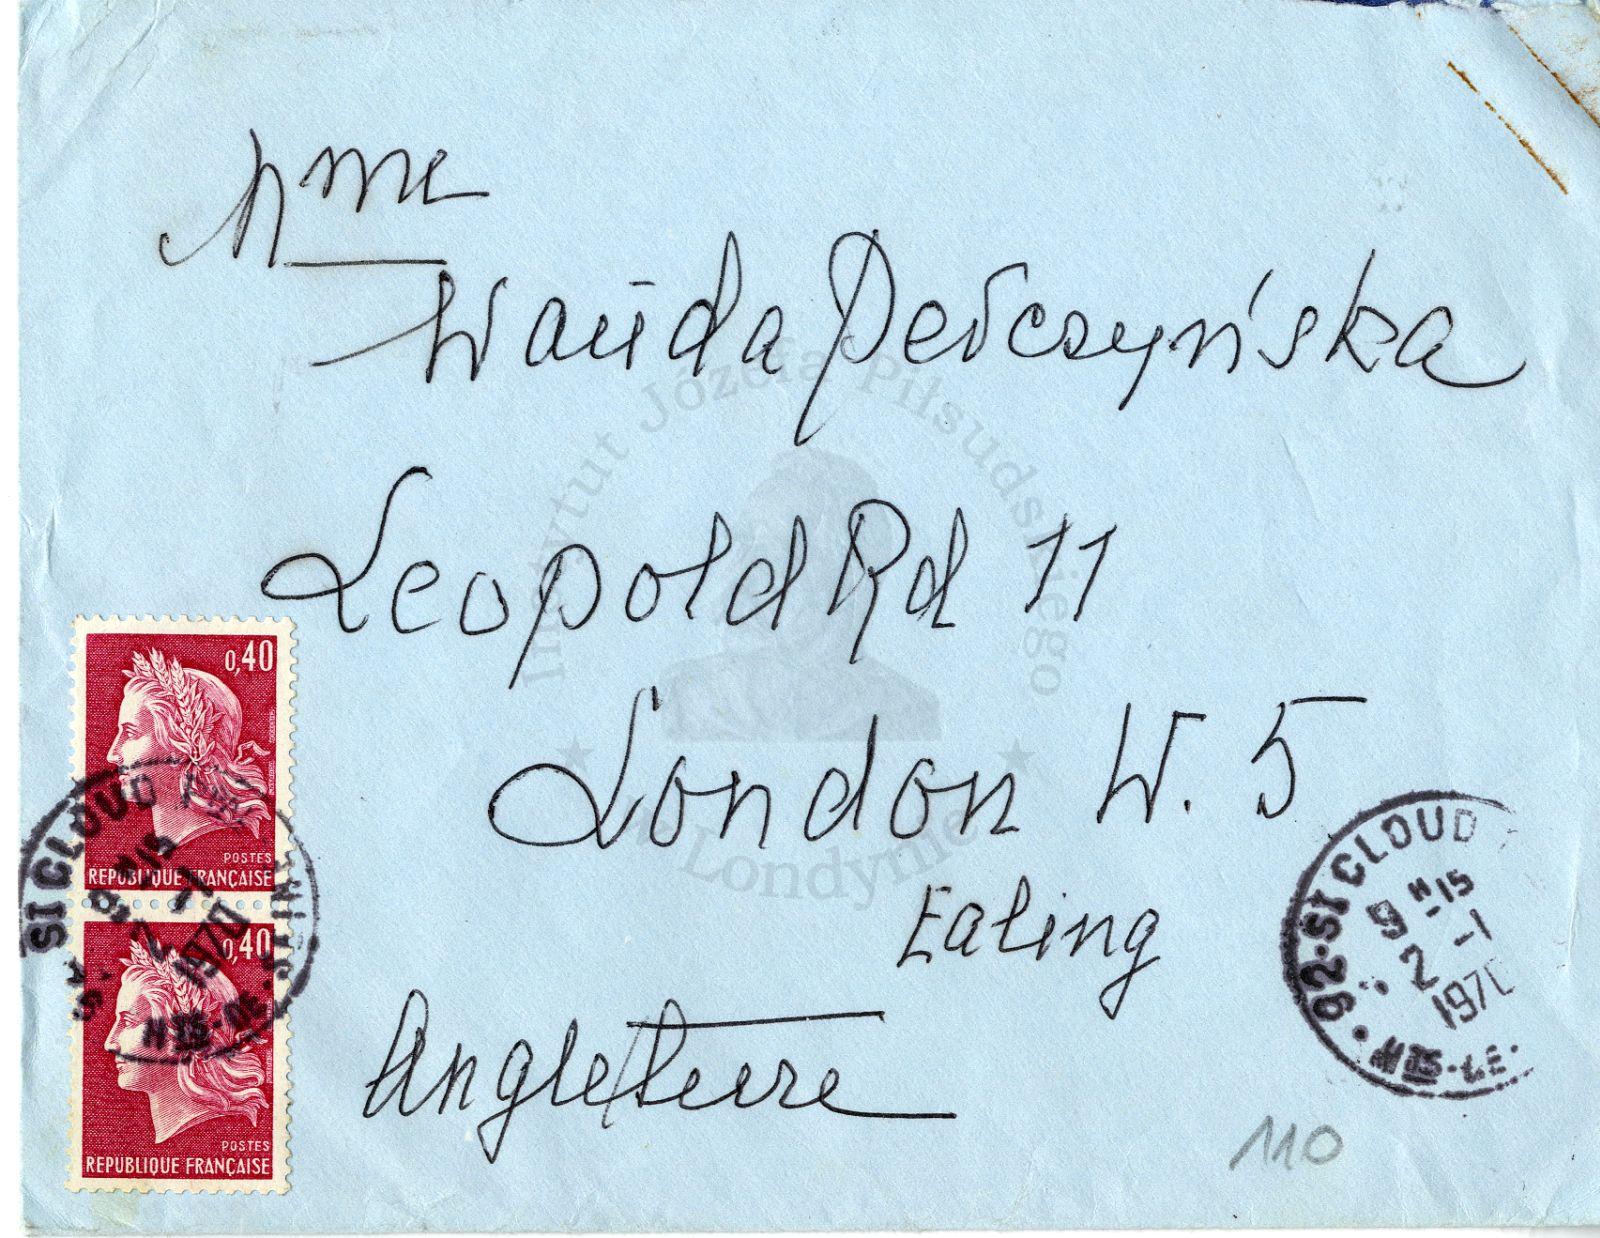 Mme
Wanda Pełczyńska
Leopold Rd 11
London W. 5
Ealing
Angleterre
110
0,40
POSTES
REPUBLIQUE FRANÇAISE
0,40
POSTES
REPUBLIQUE FRANÇAISE
ST CLOUD
9H15
2 -1
1970
HTS-DE-SEINE
92-ST CLOUD
9H15
2 -1
197
HTS-DE-
Instytut Józefa Piłsudskiego
w Londynie